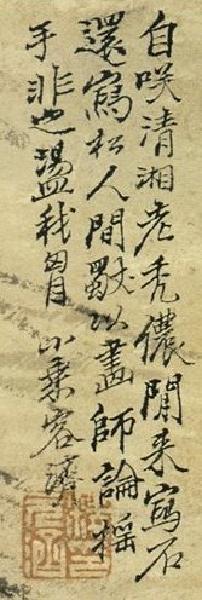 自咲清湘老禿儂閒来寫石
還寫松人間歇以畫師論搖
手非也盪我胷 小乘客濟